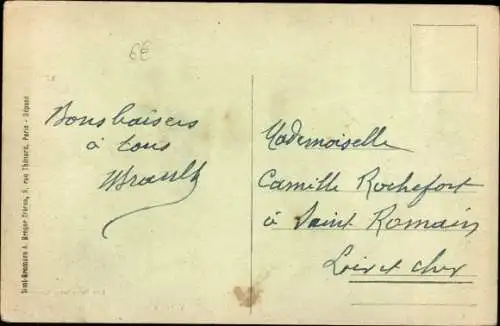 6€
Bons baisers
à tous
Mademoiselle
Camille Rochefort
à Saint Romain
Loir et cher
A. Breger Frères, 9, rue Thénard, Paris - Déposé